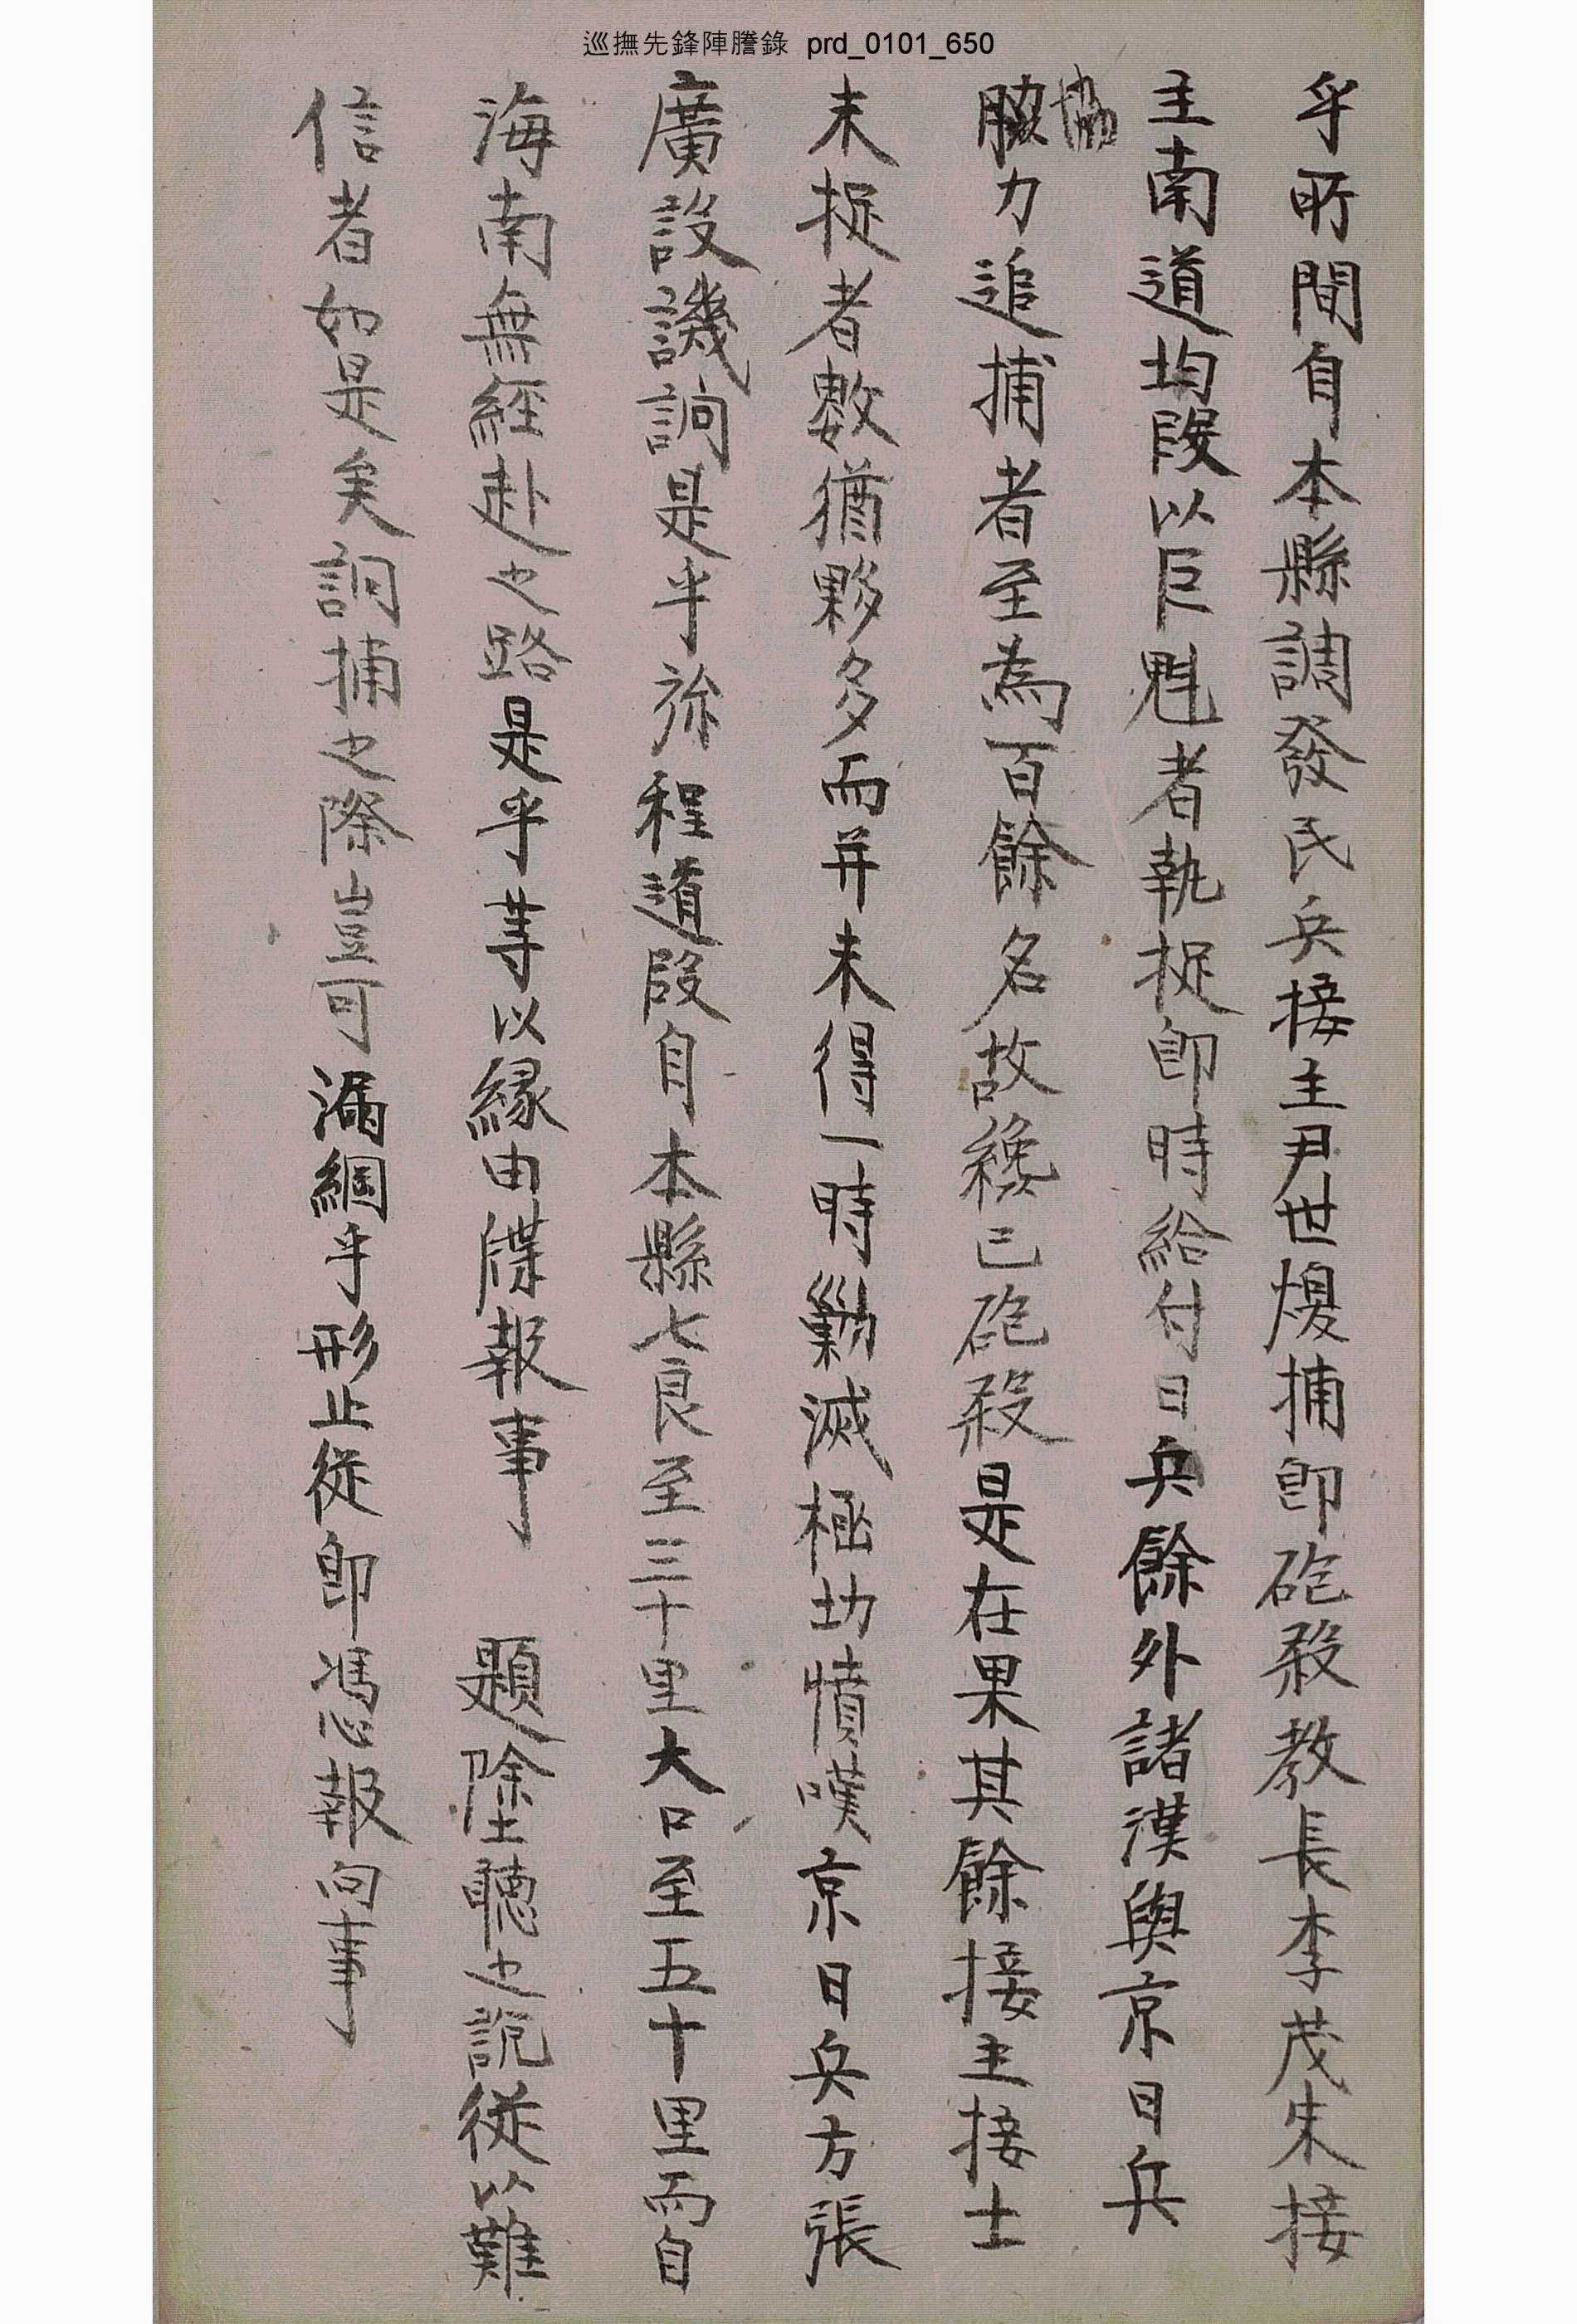 巡撫先鋒陣謄錄 prd_0101_650
乎所聞自本縣調發民兵接主尹世煥捕卽砲殺敎長李茂朱接
主南道均段以巨魁者執捉卽時給付日兵餘外諸漢與京日兵
脇力追捕者至爲百餘名故纔已砲殺是在果其餘接主接士
協
未捉者數猶夥多而幷未得一時勦滅極切憤嘆京日兵方張
廣設譏詗是乎旀程道段自本縣七良至三十里大口至五十里而自
海南無經赴之路是乎等以緣由牒報事 題塗聽之說從以難
信者如是矣詗捕之際豈可漏網乎形止從卽馮報向事